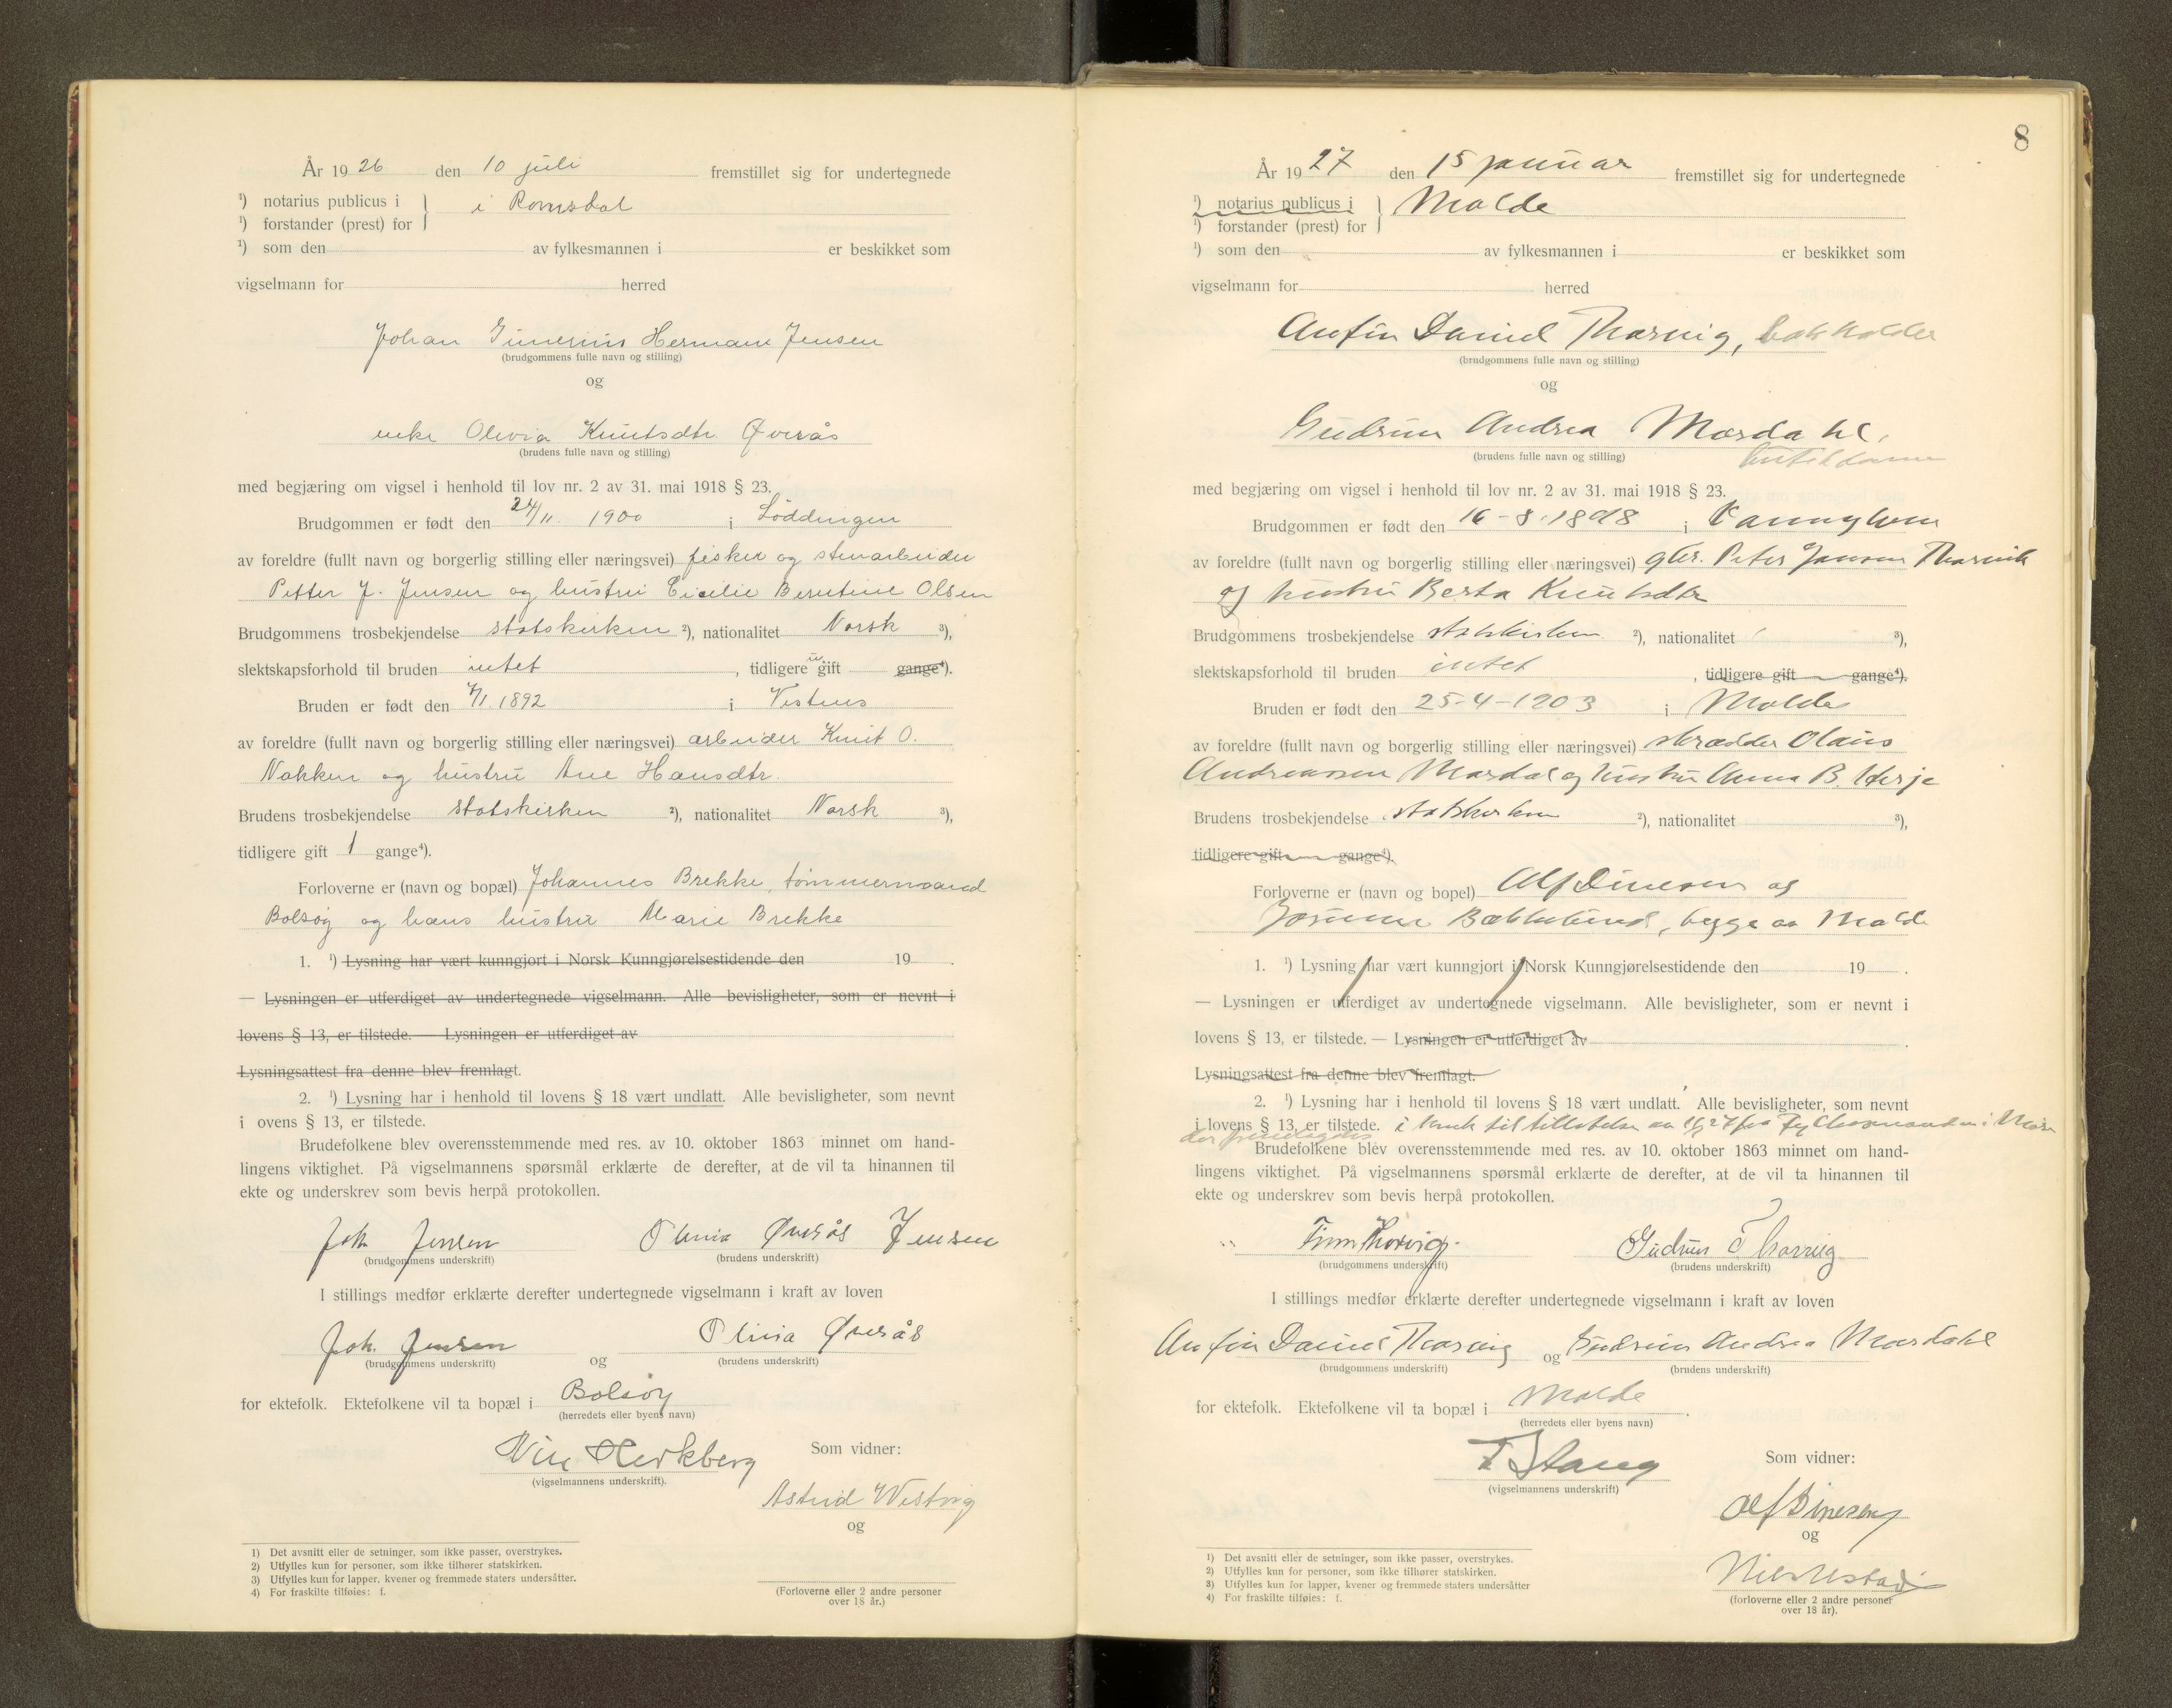 År 1926 den 10 juli fremstillet sig for undertegnede
¹) notarius publicus i } i Romsdal
¹) forstander (prest) for
¹) som den av fylkesmannen i er beskikket som
vigselmann for herred
Johan Gunerius Herman Jensen
(brudgommens fulle navn og stilling)
og
enke Olivia Knutsdtr. Øverås
(brudens fulle navn og stilling)
med begjæring om vigsel i henhold til lov nr. 2 av 31. mai 1918 § 23.
Brudgommen er født den 24/11 1900 i Løddingen
av foreldre (fullt navn og borgerlig stilling eller næringsvei) fisker og stenarbeider
Petter J. Jensen og hustru Cicilie Berntine Olsen
Brudgommens trosbekjendelse statskirken ²), nationalitet Norsk ³),
slektskapsforhold til bruden intet , tidligere u gift gange⁴).
Bruden er født den 7/1 1892 i Vestnes
av foreldre (fullt navn og borgerlig stilling eller næringsvei) arbeider Knut O.
Nakken og hustru Ane Hansdtr.
Brudens trosbekjendelse statskirken ²), nationalitet Norsk ³),
tidligere gift 1 gange⁴).
Forloverne er (navn og bopæl) Johannes Brekke, tømmermand
Bolsøy og hans hustru Marie Brekke
1. ¹) Lysning har vært kunngjort i Norsk Kunngjørelsestidende den 19 .
— Lysningen er utferdiget av undertegnede vigselmann. Alle bevisligheter, som er nevnt i
lovens § 13, er tilstede. — Lysningen er utferdiget av
Lysningsattest fra denne blev fremlagt.
2. ¹) Lysning har i henhold til lovens § 18 vært undlatt. Alle bevisligheter, som nevnt
i ovens § 13, er tilstede.
Brudefolkene blev overensstemmende med res. av 10. oktober 1863 minnet om hand-
lingens viktighet. På vigselmannens spørsmål erklærte de derefter, at de vil ta hinannen til
ekte og underskrev som bevis herpå protokollen.
Joh. Jensen Olivia Øverås Jensen
(brudgommens underskrift) (brudens underskrift)
I stillings medfør erklærte derefter undertegnede vigselmann i kraft av loven
Joh. Jensen og Olivia Øverås
(brudgommens underskrift) (brudens underskrift)
for ektefolk. Ektefolkene vil ta bopæl i Bolsøy
(herredets eller byens navn)
Som vidner:
(vigselmannens underskrift).
Astrid Westvig
og
1) Det avsnitt eller de setninger, som ikke passer, overstrykes.
2) Utfylles kun for personer, som ikke tilhører statskirken.
3) Utfylles kun for lapper, kvener og fremmede staters undersåtter.
4) For fraskilte tilføies: f.
(Forloverne eller 2 andre personer
over 18 år.)
8
År 1927 den 15 januar fremstillet sig for undertegnede
¹) notarius publicus i } Molde
¹) forstander (prest) for
¹) som den av fylkesmannen i er beskikket som
vigselmann for herred
Anfin Daniel Thorvig, bokholder
(brudgommens fulle navn og stilling)
og
Gudrun Andrea Mordahl,
(brudens fulle navn og stilling) butikdame
med begjæring om vigsel i henhold til lov nr. 2 av 31. mai 1918 § 23.
Brudgommen er født den 16-8-1898 i
av foreldre (fullt navn og borgerlig stilling eller næringsvei) gbr. Peter Jansen Thorvik
og hustru Berta Knutsdtr
Brudgommens trosbekjendelse statskirken ²), nationalitet ³),
slektskapsforhold til bruden intet , tidligere gift gange⁴).
Bruden er født den 25-4-1903 i Molde
av foreldre (fullt navn og borgerlig stilling eller næringsvei) skrædder Olaus
Andreassen Mordal og hustru Anna B. Herje
Brudens trosbekjendelse statskirken ²), nationalitet ³),
tidligere gift gange⁴).
Forloverne er (navn og bopel) Alf Dinesen og
Bækkelund, begge av Molde
1. ¹) Lysning har vært kunngjort i Norsk Kunngjørelsestidende den 19 .
— Lysningen er utferdiget av undertegnede vigselmann. Alle bevisligheter, som er nevnt i
lovens § 13, er tilstede. — Lysningen er utferdiget av .
Lysningsattest fra denne blev fremlagt.
2. ¹) Lysning har i henhold til lovens § 18 vært undlatt. Alle bevisligheter, som nevnt
i lovens § 13, er tilstede. i henh. til tillatelse av 15/1 27 fra Fylkesmanden i Møre
der fremlagdes
Brudefolkene blev overensstemmende med res. av 10. oktober 1863 minnet om hand-
lingens viktighet. På vigselmannens spørsmål erklærte de derefter, at de vil ta hinannen til
ekte og underskrev som bevis herpå protokollen.
Finn Thorvig. Gudrun Thorvig
(brudgommens underskrift) (brudens underskrift)
I stillings medfør erklærte derefter undertegnede vigselmann i kraft av loven
Anfin Daniel Thorvig og Gudrun Andrea Mordahl
(brudgommens underskrift) (brudens underskrift)
for ektefolk. Ektefolkene vil ta bopæl i Molde .
(herredets eller byens navn)
F Stang Som vidner:
(vigselmannens underskrift)
Alf Dinesen
og
Nils Ustad
1) Det avsnitt eller de setninger, som ikke passer, overstrykes.
2) Utfylles kun for personer, som ikke tilhører statskirken.
3) Utfylles kun for lapper, kvener og fremmede staters undersåtter
4) For fraskilte tilføies: f.
(forloverne eller 2 andre personer
over 18 år).